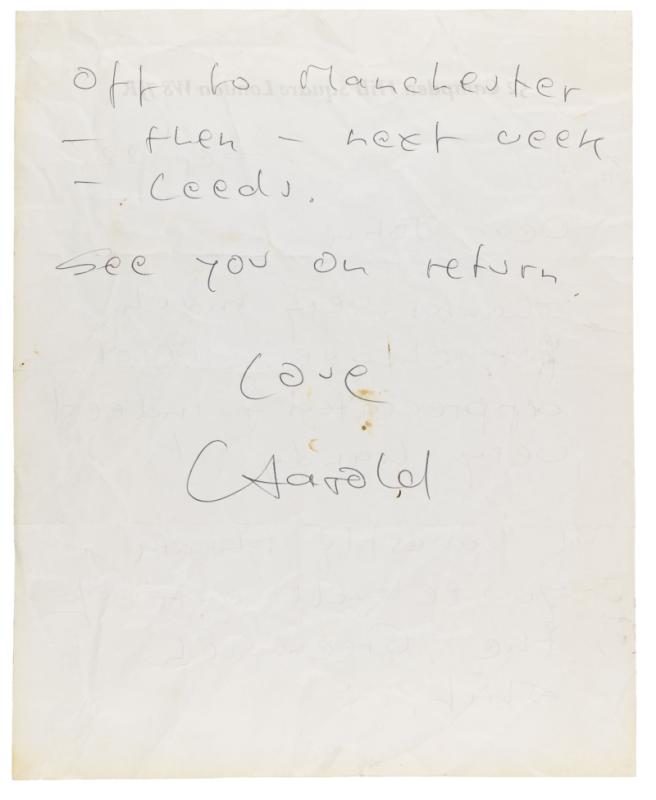 Off to Manchester
– then – next week
– Leeds.
See you on return.
Love
Harold